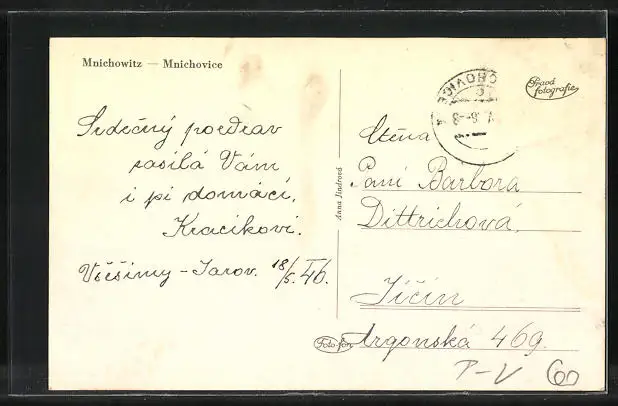 Mnichowitz — Mnichovice
Srdečný pozdrav
zasílá Vám
i pí domácí,
Kracíkovi.
Všešimy - Jarov. 18/5. 46.
Anna Jindrová
Pravá
fotografie
Ctěná
Paní Barbora
Dittrichová.
Jičín
Argonská 469.
Foto-fon
P-V 60